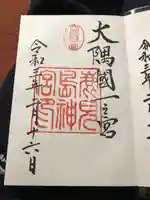 大隅國一之宮
鹿兒
島神
宮印
令和三年
月十六日